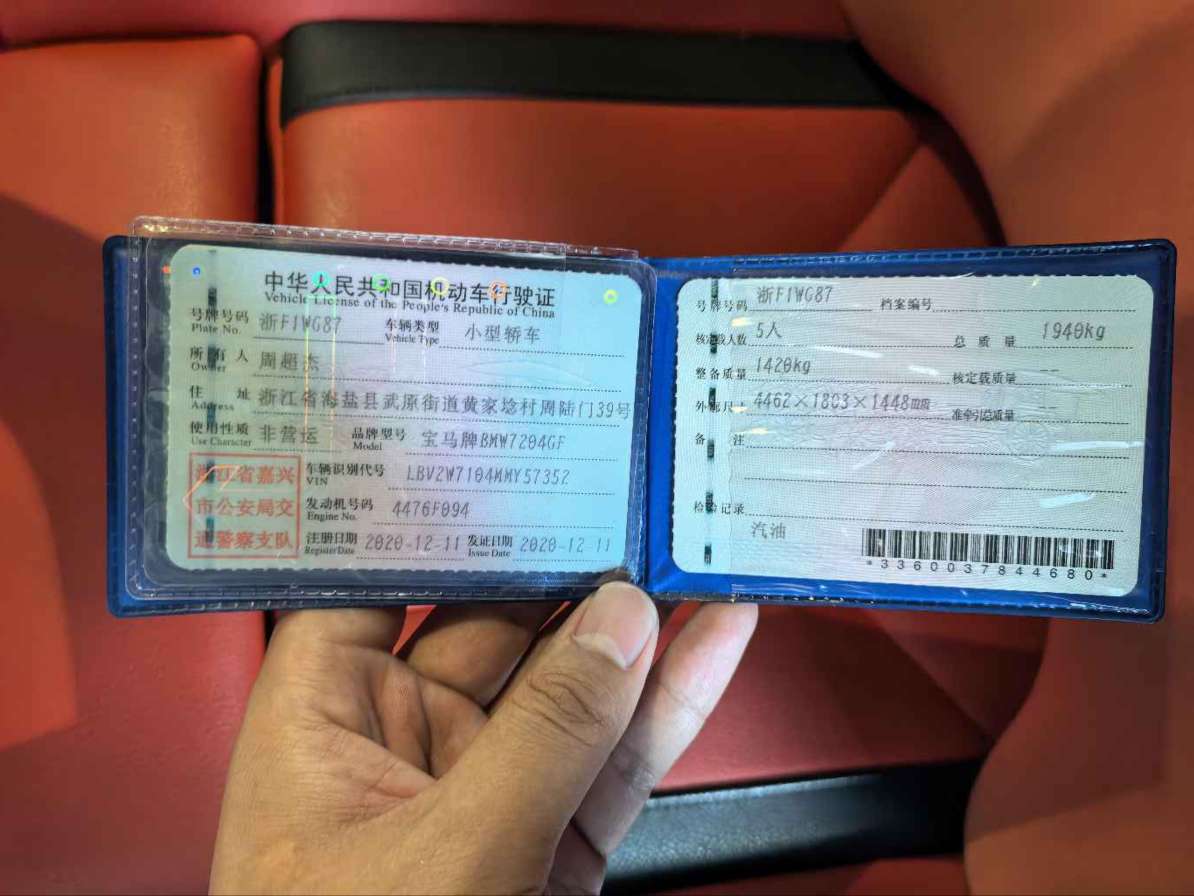 中华人民共和国机动车行驶证
Vehicle License of the People's Republic of China
号牌号码 浙F1WG87 车辆类型 小型轿车
Plate No. Vehicle Type
所有人 周超杰
Owner
住址 浙江省海盐县武原街道黄家埝村周陆门39号
Address
使用性质 非营运 品牌型号 宝马牌BMW7204GF
Use Character Model
浙江省嘉兴
市公安局交
通警察支队
车辆识别代号 LBV2W7104MMY57352
VIN
发动机号码 4476F094
Engine No.
注册日期 2020-12-11 发证日期 2020-12-11
Register Date Issue Date
号牌号码 浙F1WG87 档案编号
核定载人数 5人 总质量 1940kg
整备质量 1420kg 核定载质量 --
外廓尺寸 4462×1803×1448mm 准牵引总质量 --
备注
检验记录
汽油
*3360037844680*